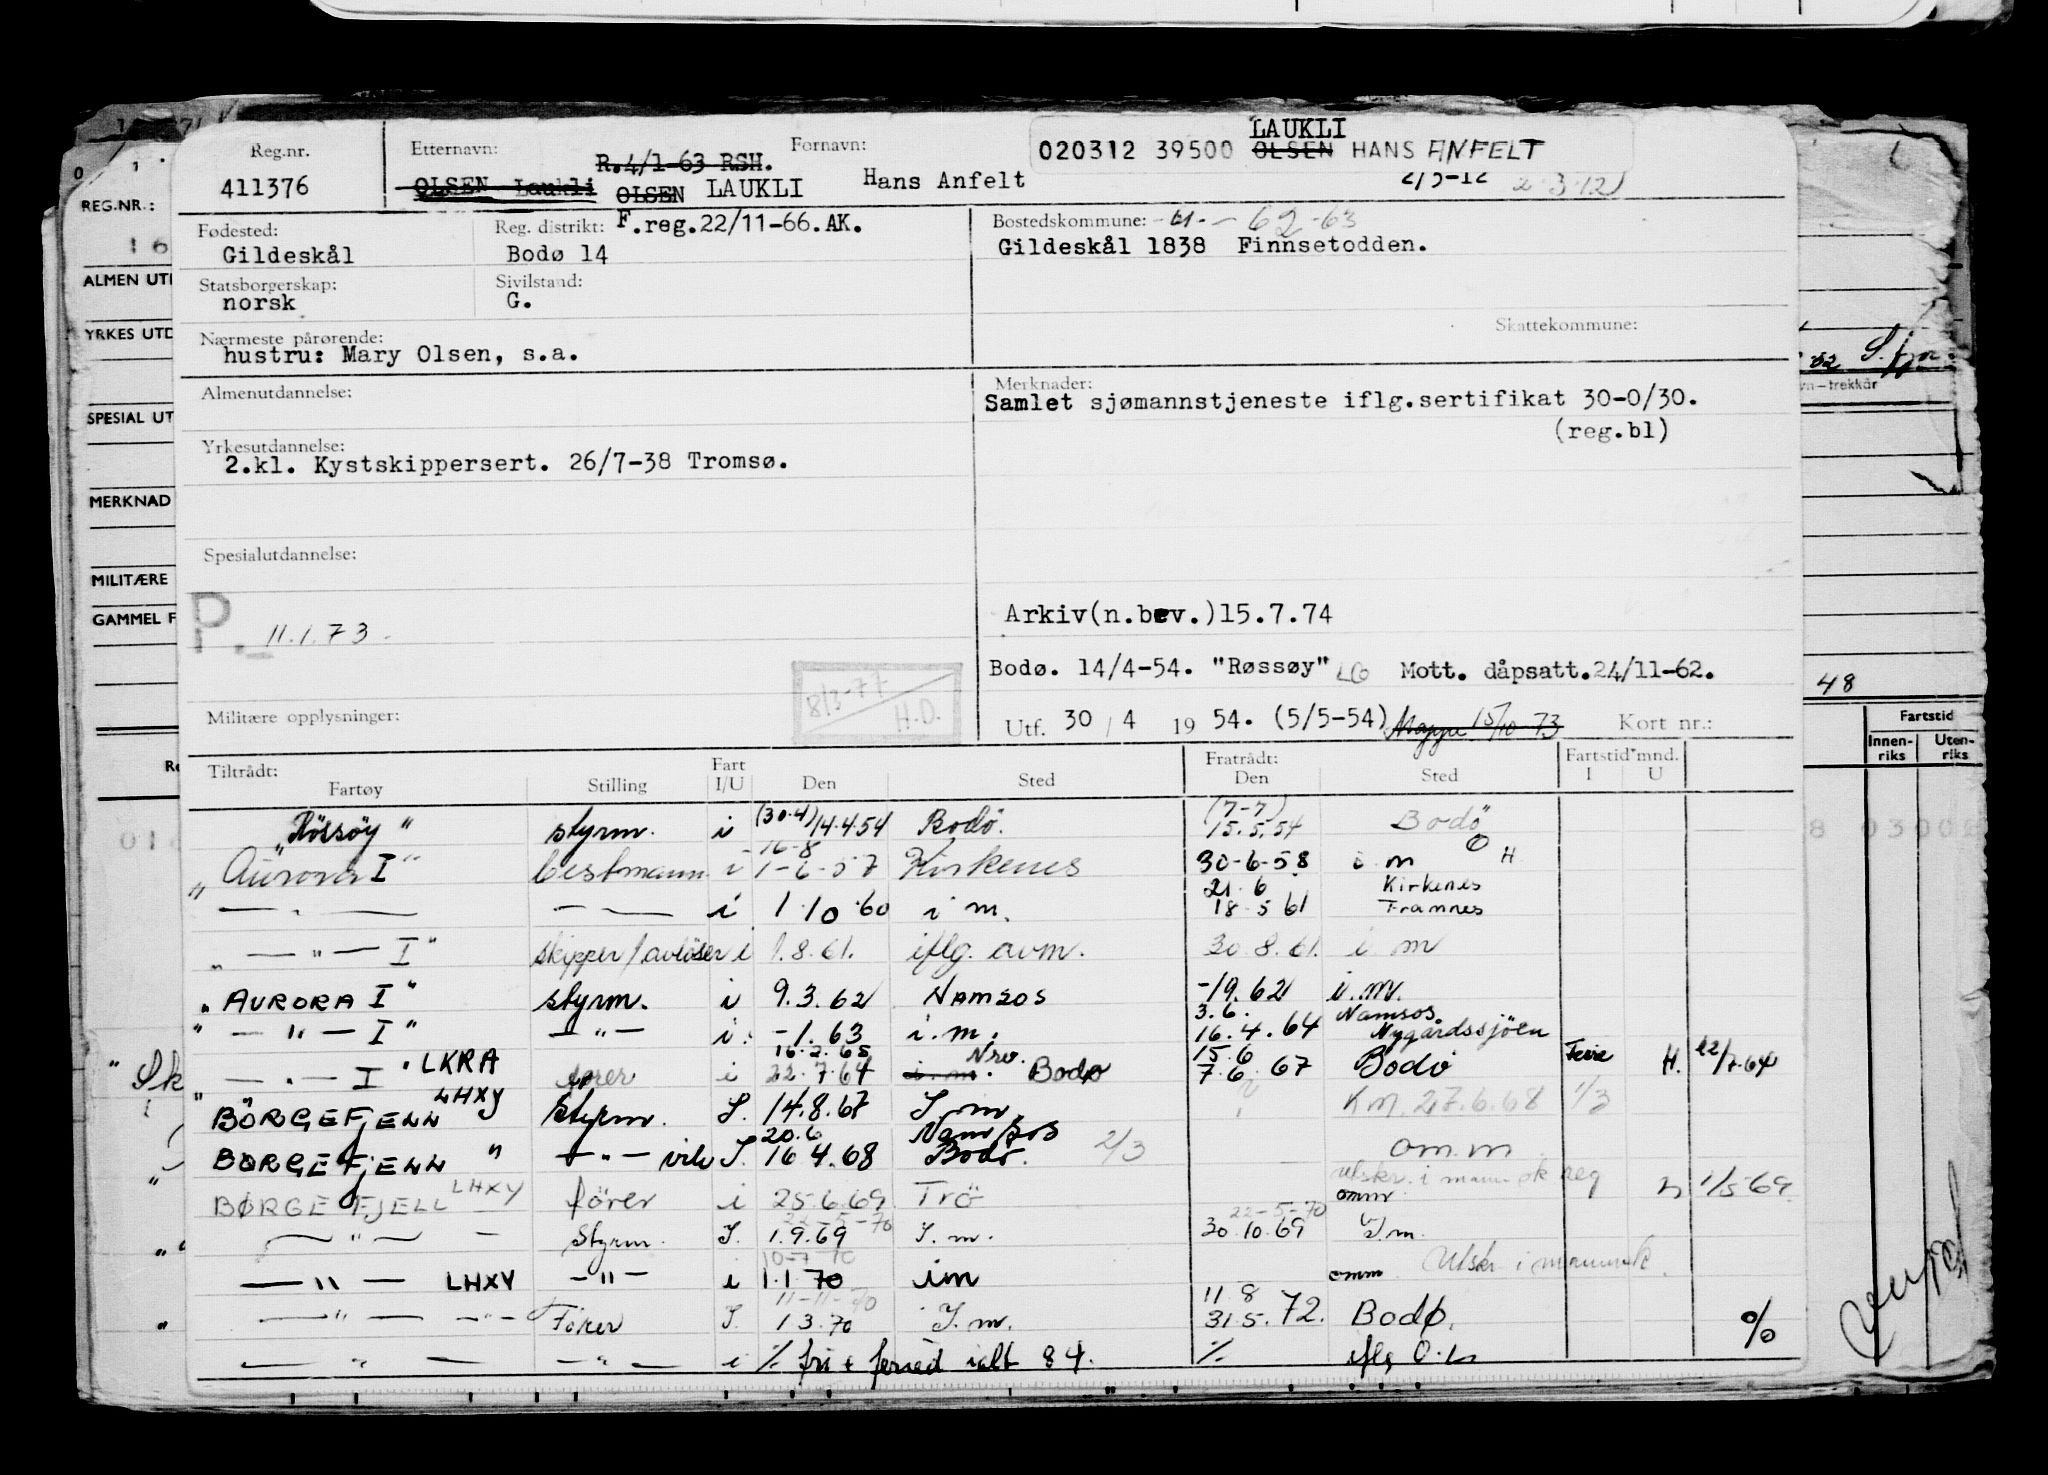 Reg.nr. Etternavn: R.4/1-63 RSH. Fornavn: LAUKLI
020312 39500 OLSEN HANS ANFELT
411376 OLSEN Laukli OLSEN LAUKLI Hans Anfelt 2/3-12 2.3.12
Fødested: Reg. distrikt: F.reg.22/11-66.AK. Bostedskommune: -61- -62-63
Gildeskål Bodø 14 Gildeskål 1838 Finnsetodden.
Statsborgerskap: Sivilstand:
norsk G.
Nærmeste pårørende: Skattekommune:
hustru: Mary Olsen, s.a.
Almenutdannelse: Merknader:
Samlet sjømannstjeneste iflg.sertifikat 30-0/30.
(reg.bl)
Yrkesutdannelse:
2.kl. Kystskippersert. 26/7-38 Tromsø.
Spesialutdannelse:
P. 11.1.73. Arkiv(n.bev.)15.7.74
Bodø. 14/4-54. "Røssøy" LG Mott. dåpsatt.24/11-62.
8/3-77 H.D.
Militære opplysninger: Utf. 30/4 1954. (5/5-54) Mappe 15/10 73 Kort nr.:
Tiltrådt: Fart Fratrådt: Fartstid mnd.
Fartøy Stilling I/U Den Sted Den Sted I U
"Røssøy" styrm. i (30.4) 14.4.54 Bodö. (7-7) 15.5.54 Bodö
"Aurora I" bestmann i 16-8 1-6-57 Kirkenes 30-6-58 i m H
— " — — i 1.10.60 i m. 21.6 18.5.61 Kirkenes Framnes
" — " — I" skipper/avløser i 1.8.61. iflg. avm. 30.8.61. i m
"AURORA I" styrm. i 9.3.62 NAMSOS -19.62 i.m.
" — " — I" — " — i. -1.63 i.m. 3.6. 16.4.64 Namsos Nygårdssjöen
" — " — I" LKRA fører i 16.2.65 22.7.64 i.m. Nrv. Bodø 15.6 7.6.67 Bodö Ferie H. 22/7-64
BÖRGEFJELL LHXY Styrm. I. 14.8.67 I.m. KM. 27.6.68 1/3
BØRGEFJELL " — " — vik I. 20.6 16.4.68 Namsos Bodö. 2/3 omm
BØRGEFJELL LHXY fören i 25.6.69 Trö utskr. i mann ok reg omm n 1/5-69
— " — — Styrm. I. 22-5-70 1.9.69 I.m. 22-5-70 30.10.69 I.m.
— " — LHXY — " — i 10-7 70 1.1.70 im omm Utskr i mannsk.
— " — — " — Förer I. 11-11-70 1.3.70 I.m. 11.8 31.5.72. Bodø. %
— " — — " — i % fri + feried ialt 84. % iflg O.L
REG.NR.:
16
ALMEN UT
YRKES UTD
SPESIAL UT
MERKNAD
MILITÆRE
GAMMEL F
Sk
-52 S. fjor.
vn-trekkår
48
Fartstid
Innen-riks Uten-riks